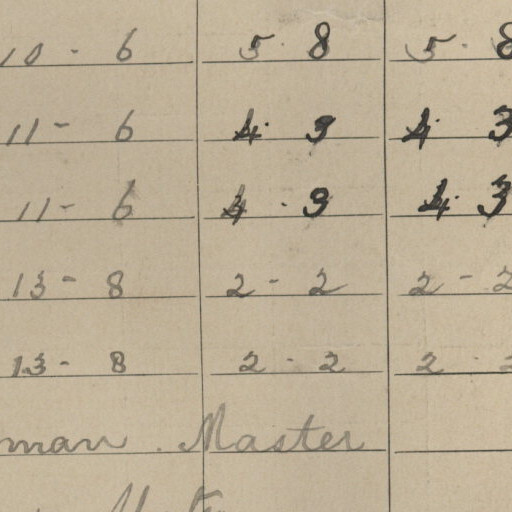 10 - 6 5 - 8 5 - 8
11 - 6 4 - 3 4 3
11 - 6 4 - 3 4 - 3
13 - 8 2 - 2 2 - 2
13 - 8 2 - 2 2 - 2
man . Master